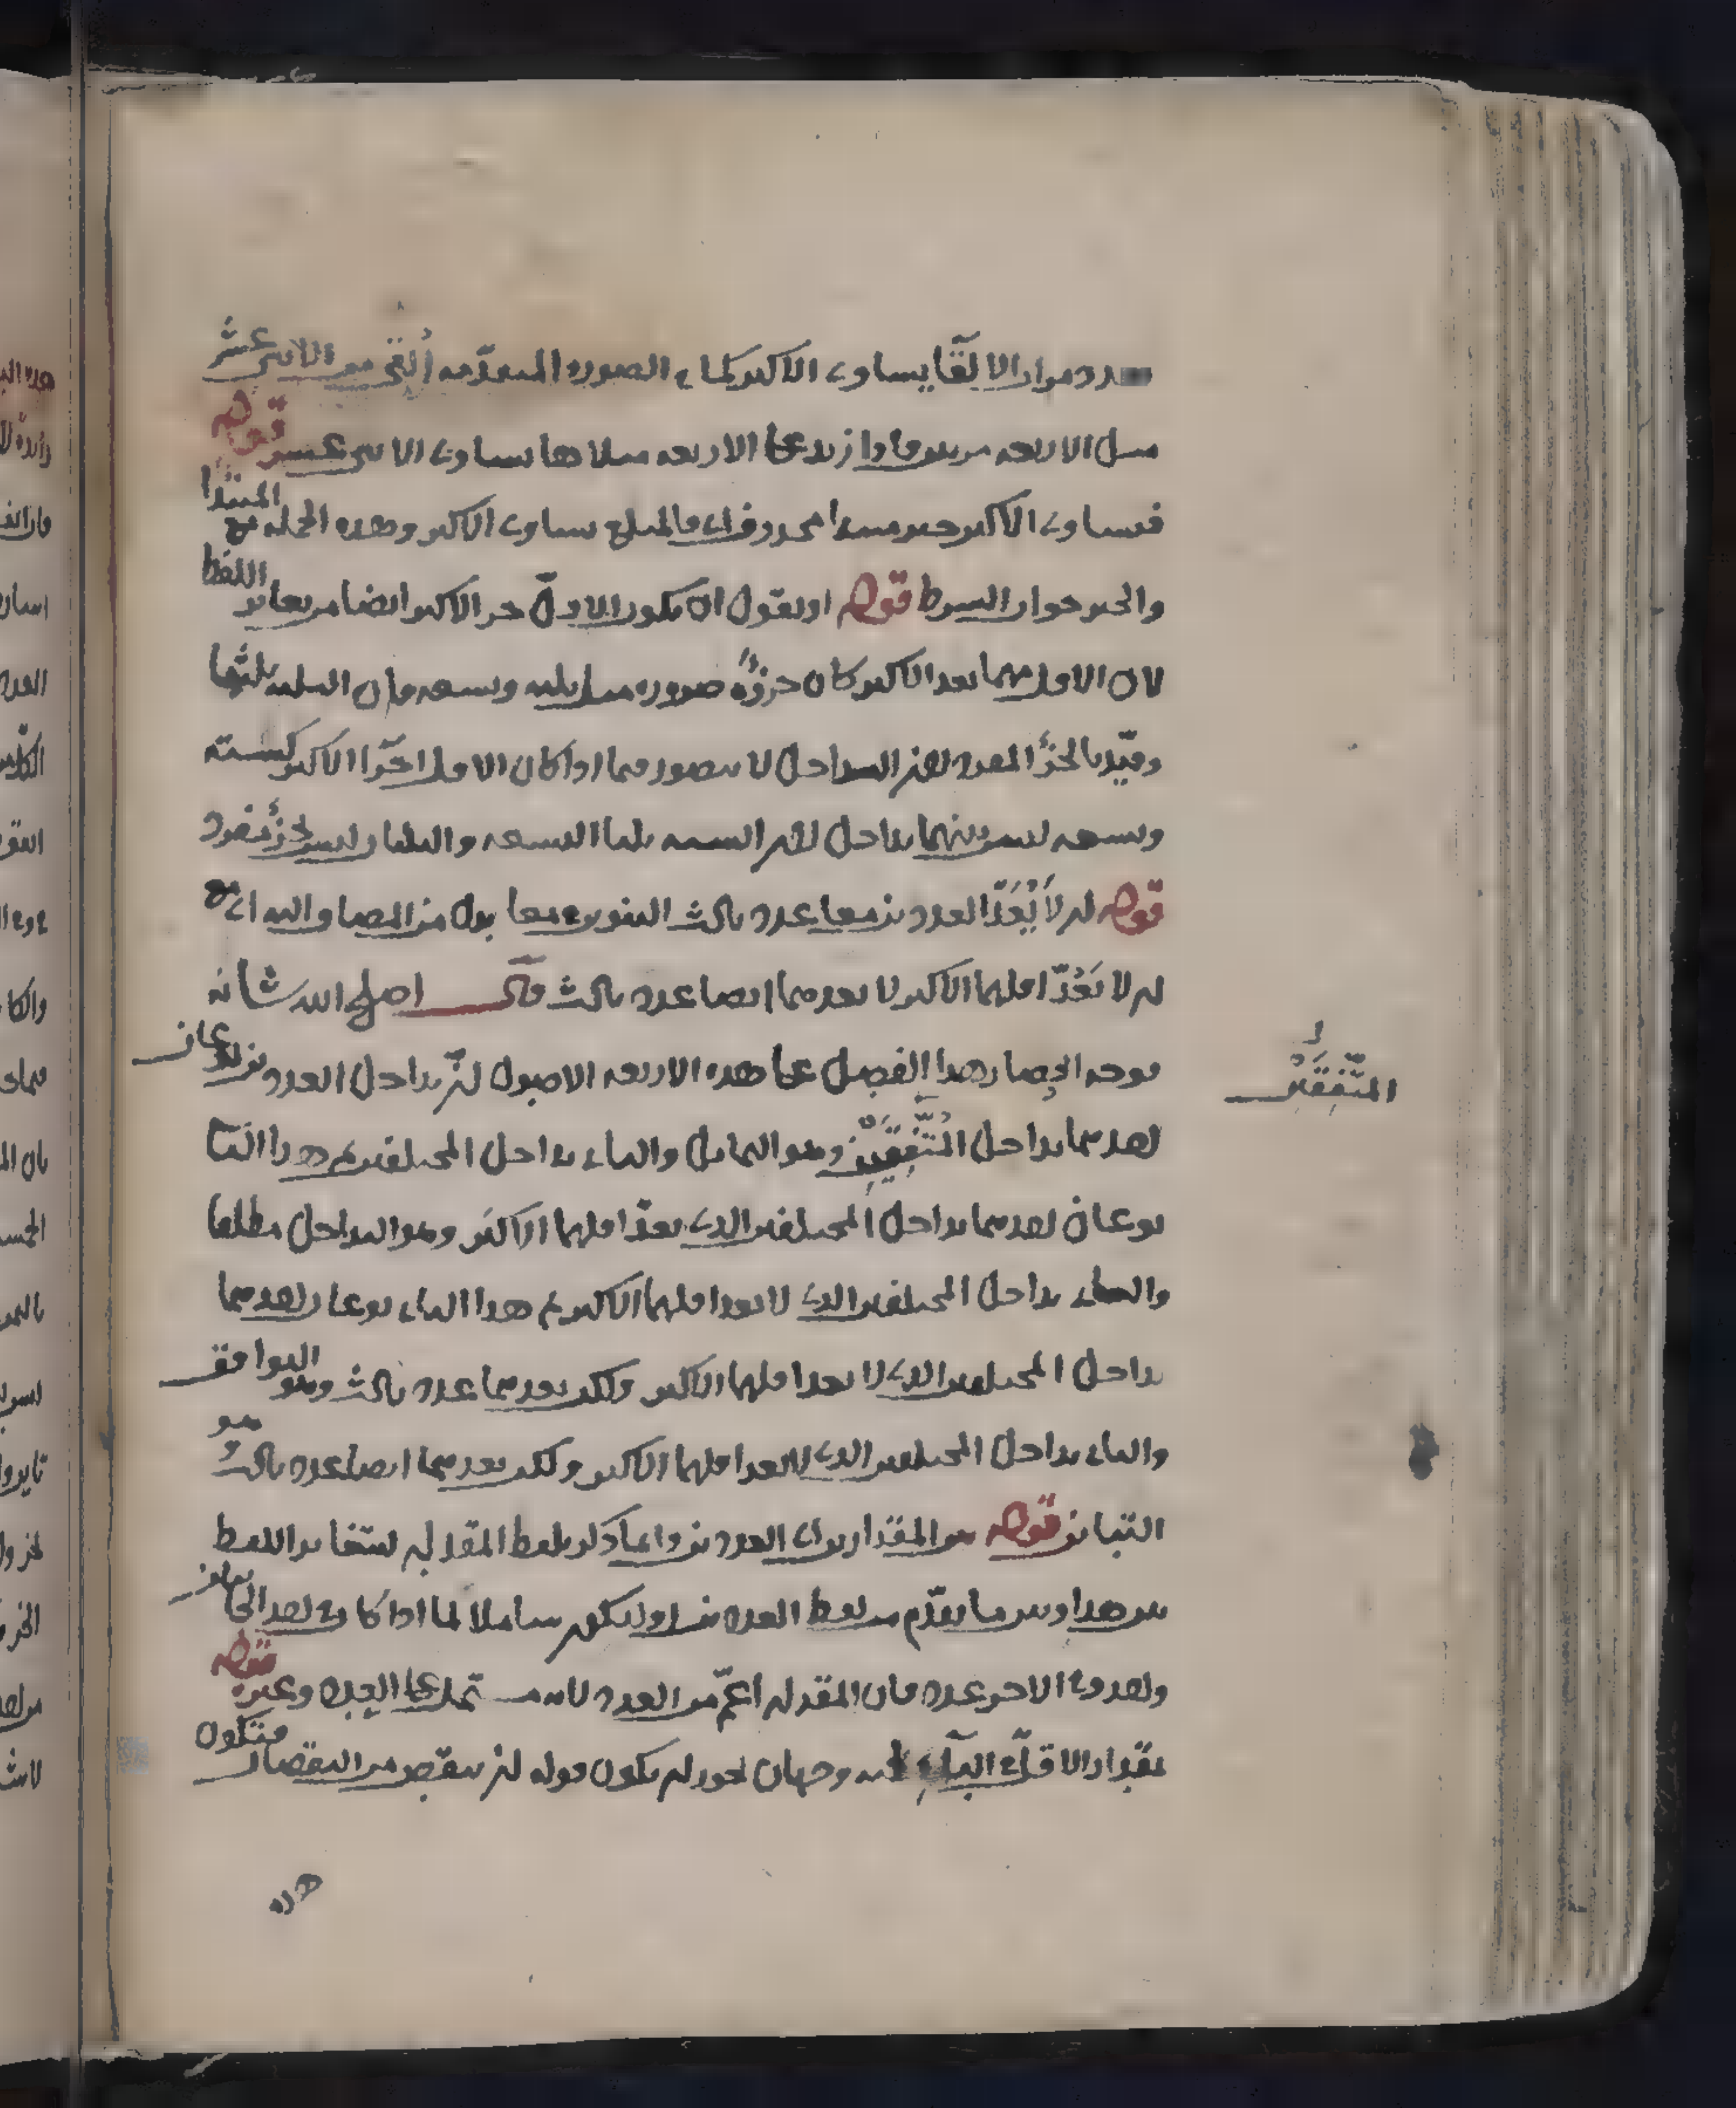 عدد مرار الالقا يساوى الاكبر كما فى الصورة المتقدّمه أُلقى من الاثنى عشر
مثل الاربعه مرتين فاذا زيد على الاربعه مثلاها يساوى الاثنى عشر قوله
فيساوى الاكبر خبر مبتدا محذوف اى فالمبلغ يساوى الاكبر وهذه الجمله مع المبتدا
والخبر جواب الشرط قوله او نقول ان يكون الاقلّ جز الاكبر ايضا من تغاير اللفظ
لان الاقل مهما يعد الاكبر كان جزؤه ضرورة مثل ثلثه وتسعه فان الثلثه ثلثها
وقيّد بالجزأ المفرد لان التداخل لا يتصور فيما اذا كان الاقل اجزا الاكبر كسته
وتسعه ليس بينهما تداخل لان السته ثلثا التسعه والثلثان ليس بجزء مفرد
قوله ان لا يَعُدّ العددين معا عدد ثالث التنوين فى معا بدل من المضاف اليه اى مع
ان لا يَعُدّ اقلهما الاكبر لا يعدهما ايضا عدد ثالث قال اصلح الله شانه
فوجه انحصار هذا الفصل على هذه الاربعه الاصول ان تداخل العددين نوعان
احدهما تداخل المُتّفِقَيْن وهو التماثل والثانى تداخل المختلفين ثم هذا الثانى
نوعان احدهما تداخل المختلفين الذى يعدّ اقلهما الاكبر وهو التداخل مطلقا
والثانى تداخل المختلفين الذى لا يعد اقلهما الاكبر ثم هذا الثانى نوعان احدهما
تداخل المختلفين الذى لا يعد اقلهما الاكبر ولكن يعدهما عدد ثالث وهو التوافق
والثانى تداخل المختلفين الذى لا يعد اقلهما الاكبر ولكن يعدهما ايضا عدد ثالث وهو
التباين قوله من المقدارين اى العددين وانما ذكر بلفظ المقدار لتغاير اللفظ
بين هذا وبين ما تقدّم من لفظ العددين او ليكون شاملا لما اذا كان فى احد الجانبين
واحد وفى الاخر عدد فان المقدار اعمّ من العدد لانه يشتمل على العدد وغيره قوله
بمقدار الاقل فى الثانى فيه وجهان يجوز ان يكون قوله ان ينقص من النقصان فتكون
هذه
المتّفِقَيْن